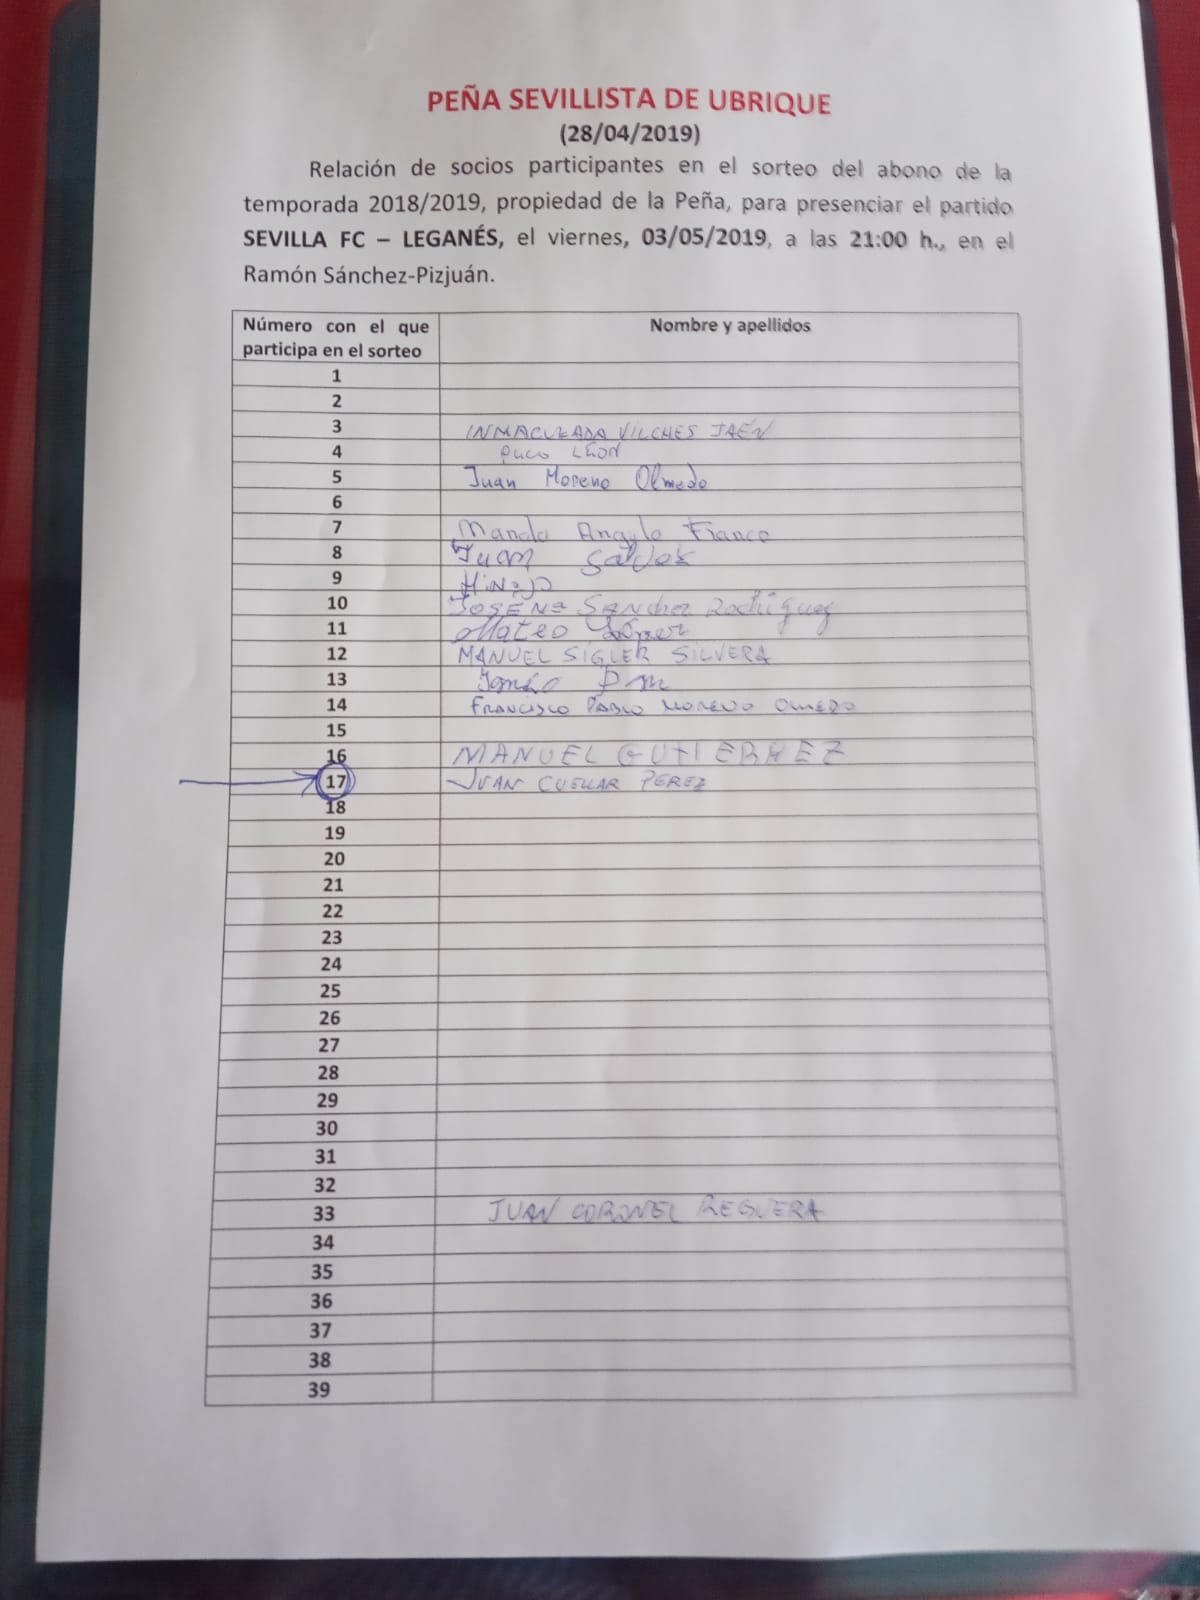 PEÑA SEVILLISTA DE UBRIQUE
(28/04/2019)
Relación de socios participantes en el sorteo del abono de la
temporada 2018/2019, propiedad de la Peña, para presenciar el partido
SEVILLA FC – LEGANÉS, el viernes, 03/05/2019, a las 21:00 h., en el
Ramón Sánchez-Pizjuán.
Número con el que participa en el sorteo Nombre y apellidos
1
2
3 INMACULADA VILCHES JAÉN
4 LEON
5 Juan Moreno Olmedo
6
7 Manolo Angulo Franco
8 Juan
9 Hinojo
10 JOSÉ Mª SANchez Rodriguez
11 Mateo López
12 MANUEL SIGLER SILVERA
13
14 FRANCISCO PABLO MORENO OLMEDO
15
16 MANUEL GUTIERREZ
17 JUAN CUELLAR PEREZ
18
19
20
21
22
23
24
25
26
27
28
29
30
31
32
33 JUAN CORONEL REGUERA
34
35
36
37
38
39